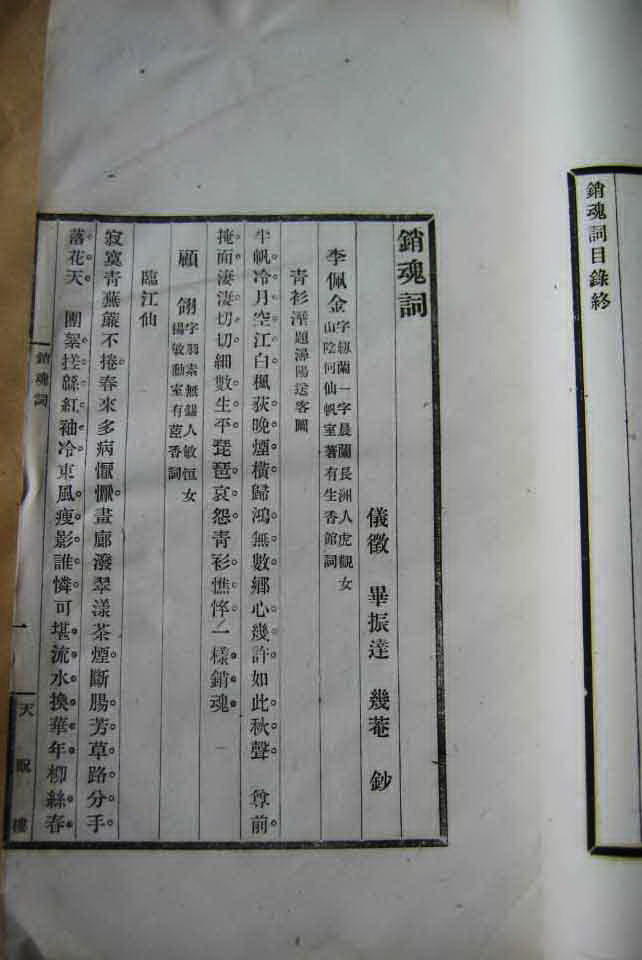 銷魂詞目錄終
銷魂詞
儀徵 畢振達 幾菴 鈔
李佩金字紉蘭一字晨蘭長洲人虎觀女
山陰何仙帆室著有生香館詞
青衫溼題潯陽送客圖
半帆冷月空江白楓荻晚煙橫歸鴻無數鄉心幾許如此秋聲 尊前
掩面淒淒切切細數生平琵琶哀怨青衫憔悴一樣銷魂
顧翎字羽素無錫人敏恒女
楊敏勳室有茝香詞
臨江仙
寂寞青蕪簾不捲春來多病懨懨畫廊潑翠漾茶煙斷腸芳草路分手
落花天 團絮搓緜紅袖冷東風瘦影誰憐可堪流水換華年柳絲春
銷魂詞
一
天
樓